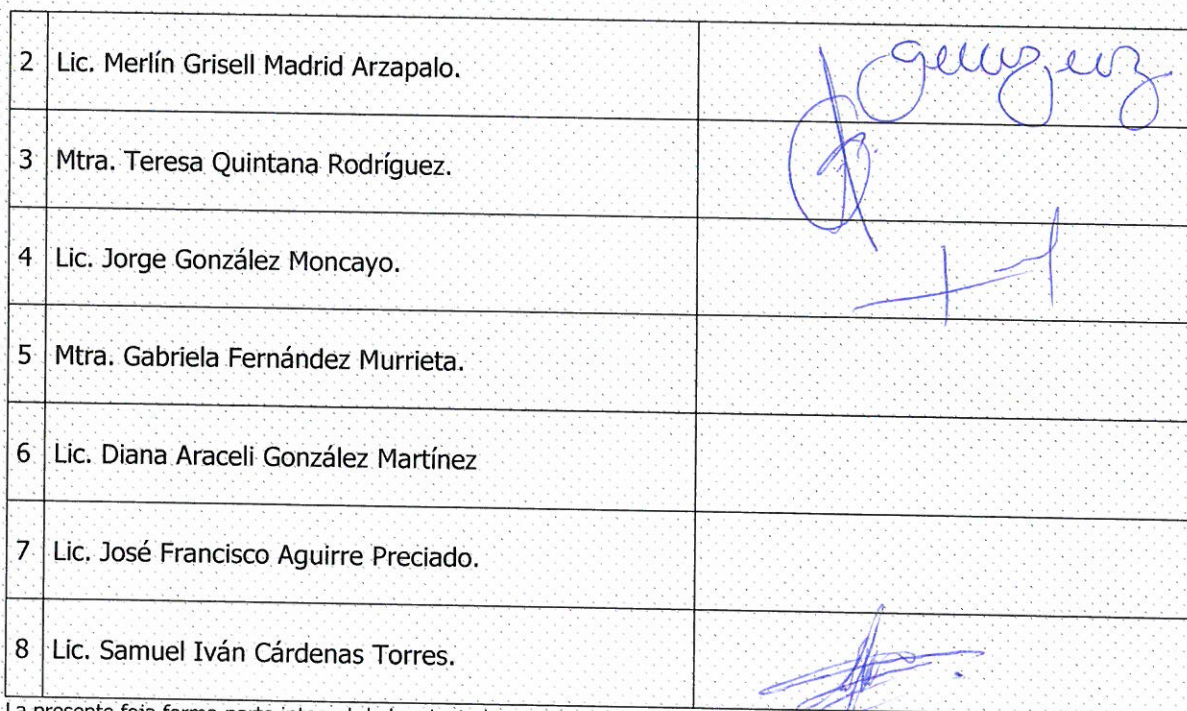 2 Lic. Merlín Grisell Madrid Arzapalo.
3 Mtra. Teresa Quintana Rodríguez.
4 Lic. Jorge González Moncayo.
5 Mtra. Gabriela Fernández Murrieta.
6 Lic. Diana Araceli González Martínez
7 Lic. José Francisco Aguirre Preciado.
8 Lic. Samuel Iván Cárdenas Torres.
La presente foja forma parte